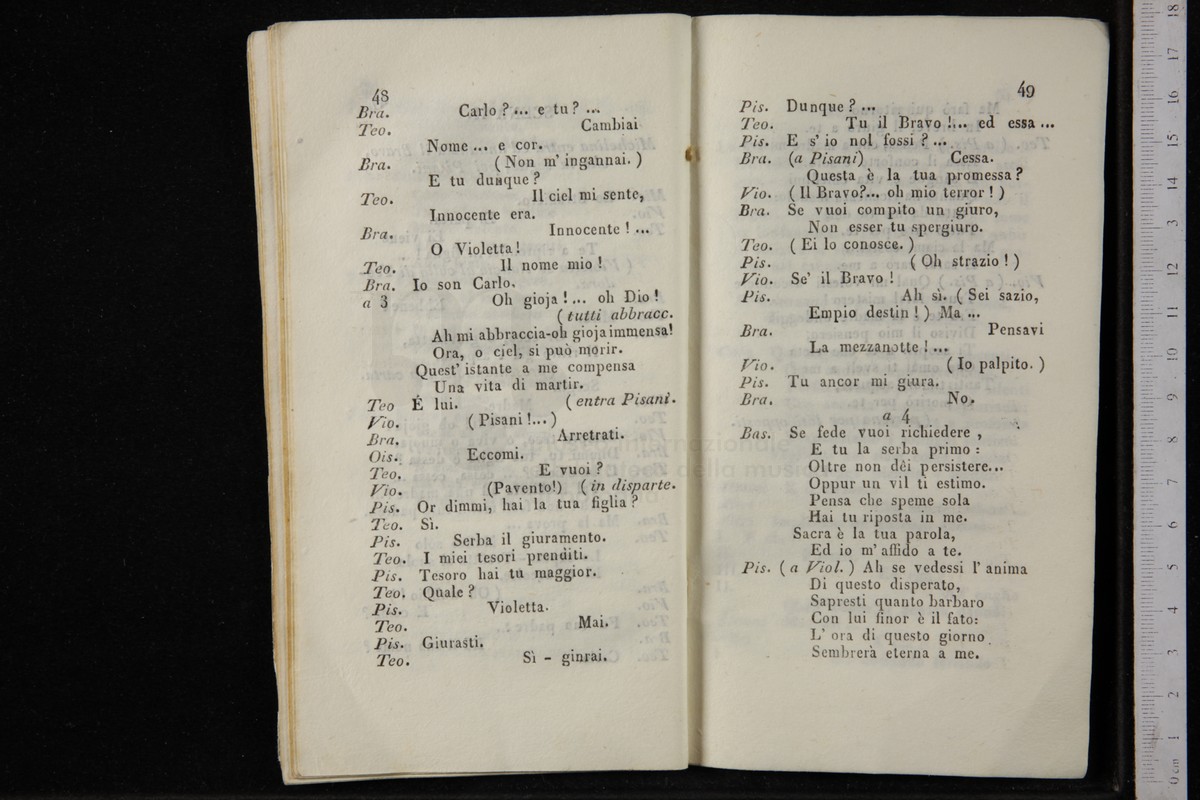 48
Bra. Carlo ? ... e tu ? ...
Teo. Cambiai
Nome ... e cor.
Bra. ( Non m' ingannai. )
E tu dunque ?
Teo. Il ciel mi sente,
Innocente era.
Bra. Innocente ! ...
O Violetta !
Teo. Il nome mio !
Bra. Io son Carlo.
a 3 Oh gioja ! ... oh Dio !
( tutti abbracc.
Ah mi abbraccia-oh gioja immensa!
Ora, o ciel, si può morir.
Quest' istante a me compensa
Una vita di martir.
Teo È lui. ( entra Pisani.
Vio. ( Pisani !... )
Bra. Arretrati.
Ois. Eccomi.
Teo. E vuoi ?
Vio. (Pavento!) ( in disparte.
Pis. Or dimmi, hai la tua figlia ?
Teo. Sì.
Pis. Serba il giuramento.
Teo. I miei tesori prenditi.
Pis. Tesoro hai tu maggior.
Teo. Quale ?
Pis. Violetta.
Teo. Mai.
Pis. Giurasti.
Teo. Sì - ginrai.
49
Pis. Dunque ? ...
Teo. Tu il Bravo !... ed essa ...
Pis. E s' io nol fossi ? ...
Bra. (a Pisani) Cessa.
Questa è la tua promessa ?
Vio. ( Il Bravo?... oh mio terror ! )
Bra. Se vuoi compito un giuro,
Non esser tu spergiuro.
Teo. ( Ei lo conosce. )
Pis. ( Oh strazio ! )
Vio. Se' il Bravo !
Pis. Ah sì. ( Sei sazio,
Empio destin ! ) Ma ...
Bra. Pensavi
La mezzanotte ! ...
Vio. ( Io palpito. )
Pis. Tu ancor mi giura.
Bra. No.
a 4
Bas. Se fede vuoi richiedere ,
E tu la serba primo :
Oltre non dêi persistere...
Oppur un vil ti estimo.
Pensa che speme sola
Hai tu riposta in me.
Sacra è la tua parola,
Ed io m' affido a te.
Pis. ( a Viol. ) Ah se vedessi l' anima
Di questo disperato,
Sapresti quanto barbaro
Con lui finor è il fato:
L' ora di questo giorno
Sembrerà eterna a me.